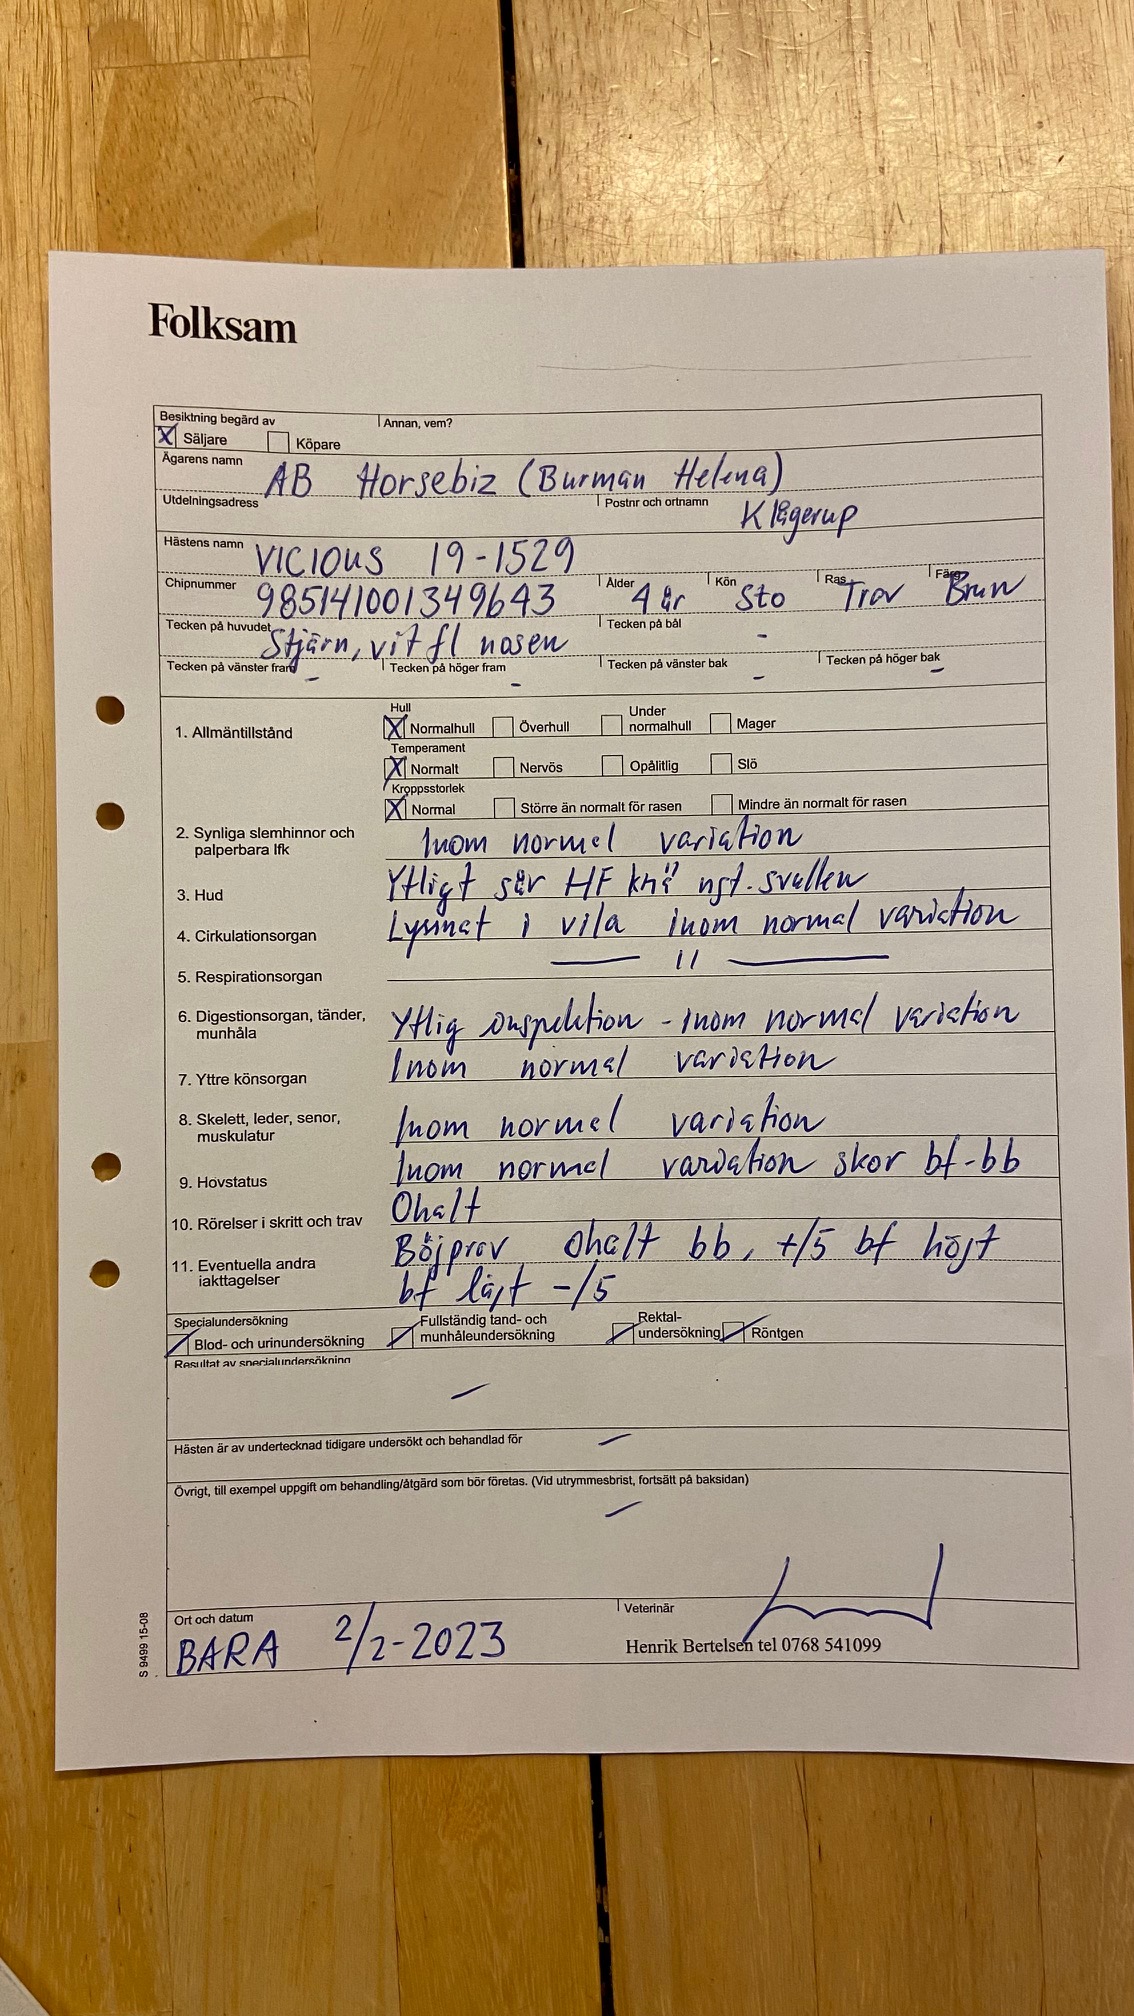 Folksam
Besiktning begärd av Annan, vem?
X Säljare Köpare
Ägarens namn AB Horsebiz (Burman Helena)
Utdelningsadress Postnr och ortnamn Klågerup
Hästens namn VICIOUS 19-1529
Chipnummer 985141001349643 Ålder 4 år Kön Sto Ras Trav Färg Brun
Tecken på huvudet Stjärn, vit fl nosen Tecken på bål -
Tecken på vänster fram - Tecken på höger fram - Tecken på vänster bak - Tecken på höger bak -
1. Allmäntillstånd
Hull
X Normalhull Överhull Under normalhull Mager
Temperament
X Normalt Nervös Opålitlig Slö
Kroppsstorlek
X Normal Större än normalt för rasen Mindre än normalt för rasen
2. Synliga slemhinnor och
palperbara lfk Inom normal variation
3. Hud Ytligt sår HF knä ngt. svullen
4. Cirkulationsorgan Lyssnat i vila inom normal variation
5. Respirationsorgan — 11 —
6. Digestionsorgan, tänder,
munhåla Ytlig inspektion - inom normal variation
7. Yttre könsorgan Inom normal variation
8. Skelett, leder, senor,
muskulatur Inom normal variation
9. Hovstatus Inom normal variation skor bf-bb
10. Rörelser i skritt och trav Ohalt
11. Eventuella andra
iakttagelser Böjprov ohalt bb, +/5 bf högt
bf lågt -/5
Specialundersökning
Blod- och urinundersökning Fullständig tand- och munhåleundersökning Rektal-undersökning Röntgen
Resultat av specialundersökning
Hästen är av undertecknad tidigare undersökt och behandlad för
Övrigt, till exempel uppgift om behandling/åtgärd som bör företas. (Vid utrymmesbrist, fortsätt på baksidan)
Ort och datum Veterinär
BARA 2/2-2023 Henrik Bertelsen tel 0768 541099
S 9499 15-08